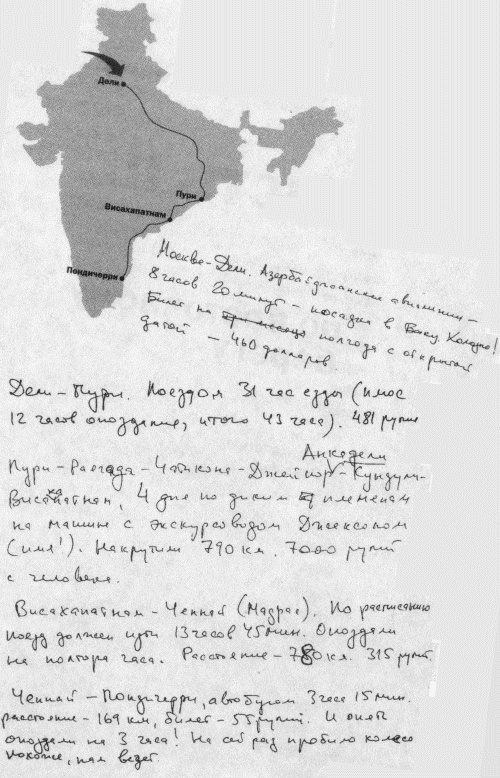 Дели
Пури
Висакхапатнам
Пондичерри
Москва-Дели. Азербайджанские авиалинии -
8 часов 20 минут - посадка в Баку. Холодно!
Билет на три месяца полгода с открытой
датой - 460 долларов.
Дели-Пури. Поездом 31 час езды (плюс
12 часов опоздание, итого 43 часа). 481 рупия
Анкадели
Пури-Раегада-Чатикона-Джейпор-Кундули-
Висакхапатнам, 4 дня по диким племенам
на машине с экскурсоводом Джексоном
(имя!). Накрутили 790 км. 7000 рупий
с человека.
Висахапатнам-Ченнай (Мадрас). По расписанию
поезд должен идти 13 часов 45 мин. Опоздали
на полтора часа. Расстояние - 780 км. 315 рупий.
Ченнай-Пондичерри, автобусом 3 часа 15 мин.
расстояние - 169 км, билет - 55 рупий. И опять
опоздали на 3 часа! На сей раз пробило колесо
похоже, нам везет